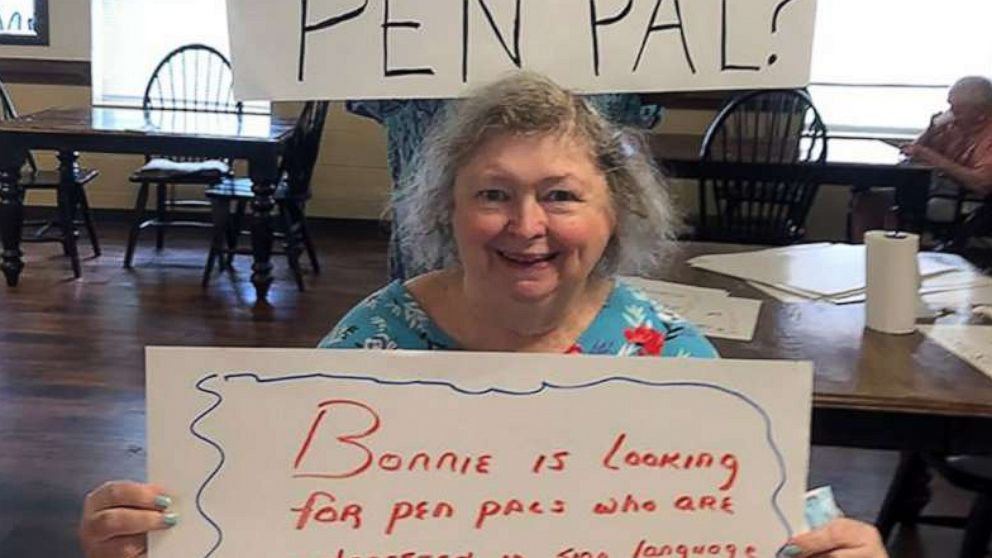 PEN PAL?
Bonnie is looking
for pen pals who are
interested in sign language